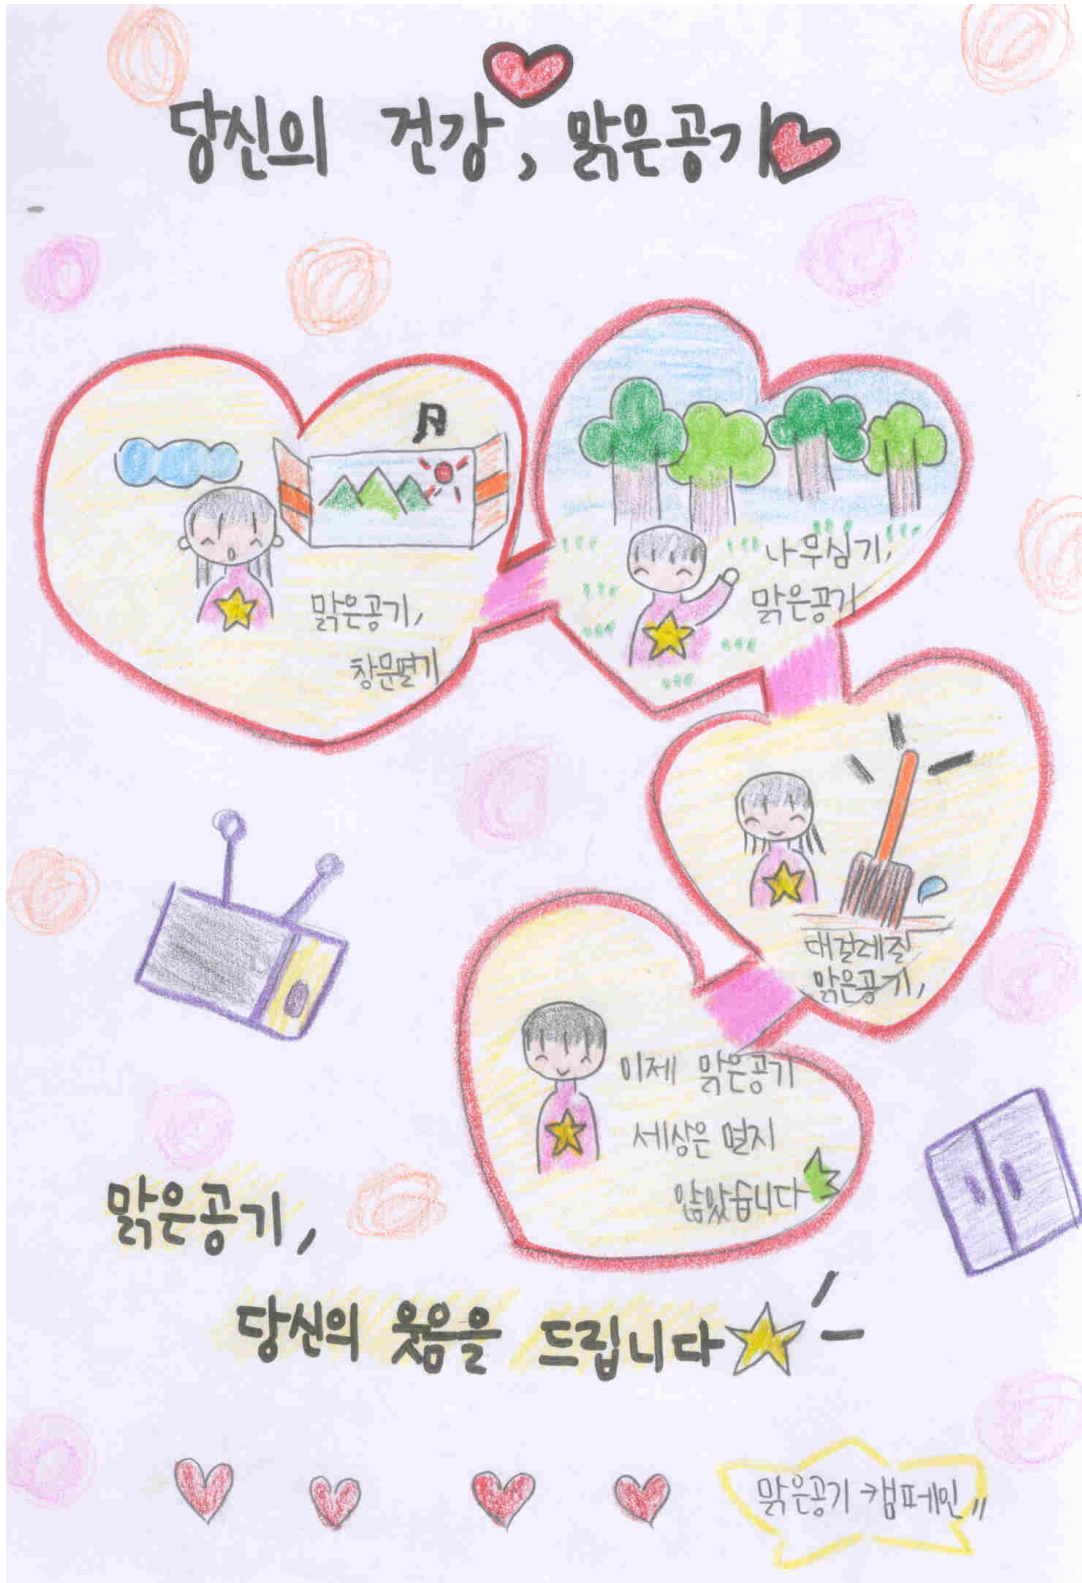 당신의 건강, 맑은공기
맑은공기,
창문열기
나무심기,
맑은공기
대걸레질
맑은공기,
이제 맑은공기
세상은 멀지
않았습니다
맑은공기,
당신의 웃음을 드립니다
맑은공기 캠페인